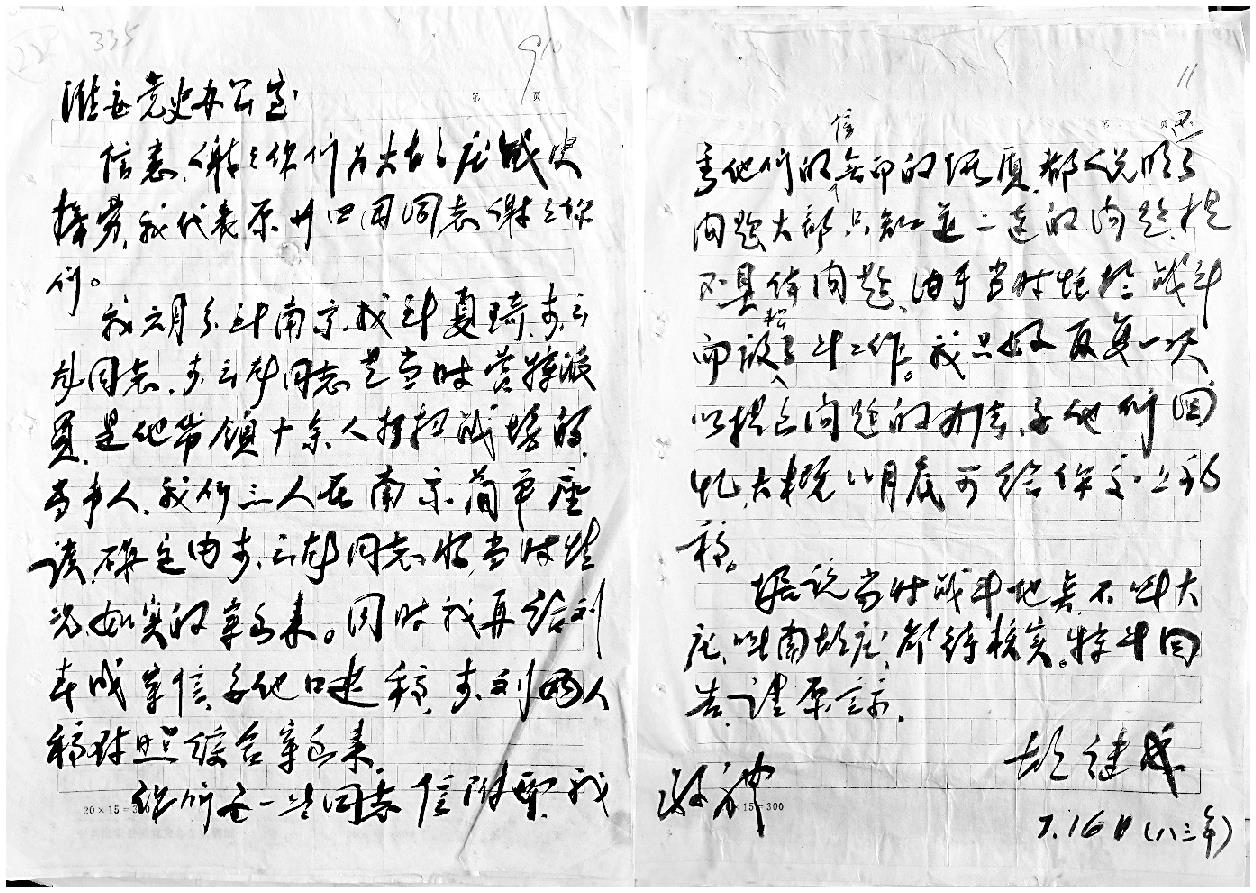 335
910
第 页
淮安党史办公室
信悉,谢谢你们为大胡庄战史
操劳,我代表原廿四团同志谢谢你
们。
我六月分到南京,找到夏琦、李云
鹏同志,李云鹏同志是当时营特派
员,是他带领十余人打扫战场的
当事人,我们三人在南京简单座
谈,确定由李云鹏同志将当时情
况如实的写出来。同时我再给刘
本成写信,要他口述稿,李、刘两人
稿对照综合写出来。
你们每一此同志信附要我
20×15=300
11
第 页
信 还
看他们的 的 都说明了
问题大部只知道一二 的问题,提
不具体问题,由于当时忙于战斗
而放松了 工作。我只好反复一次
以提出问题的办法,要他们回
忆,大概八月底可给你交上初
稿。
据说当时战斗地点不叫大
庄,叫南胡庄,都待核实。特此回
告,请原谅。
胡继成
致神
15=300
7.16日(八三年)